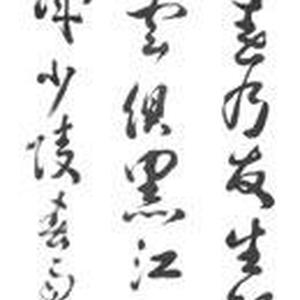 春乃發生
雲俱黑江
少陵春雨